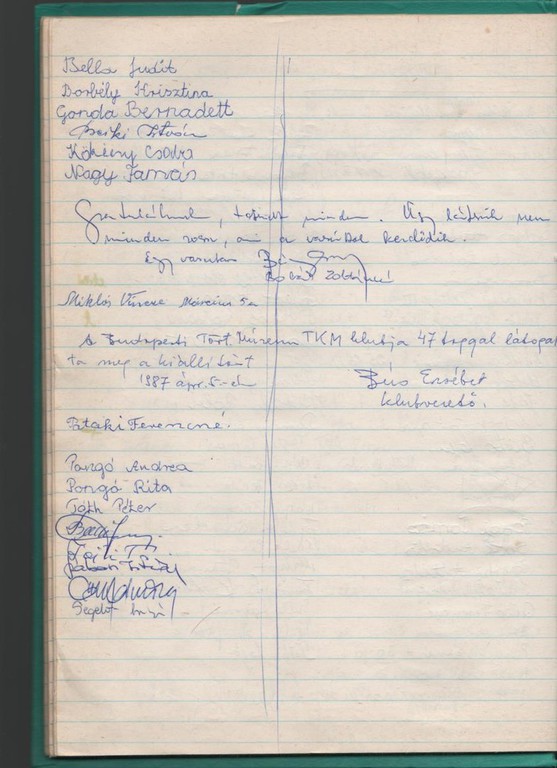 Bella Judit
Borbély Krisztina
Gonda Bernadett
István
Kökény Csaba
Nagy Tamás
Gratulálunk, minden. Úgy látszik nem
minden rossz, ami a vasúttal kezdődik.
Egy vasutas
Zoltánné
Miklós Vincze Március 5-én
A Budapesti Tört. Múzeum TKM klubja 47 taggal látogat
ta meg a kiállítást
1987 ápr. 5-én
Bús Erzsébet
klubvezető.
Pataki Ferencné.
Pongó Andrea
Pongó Rita
Tóth Péter